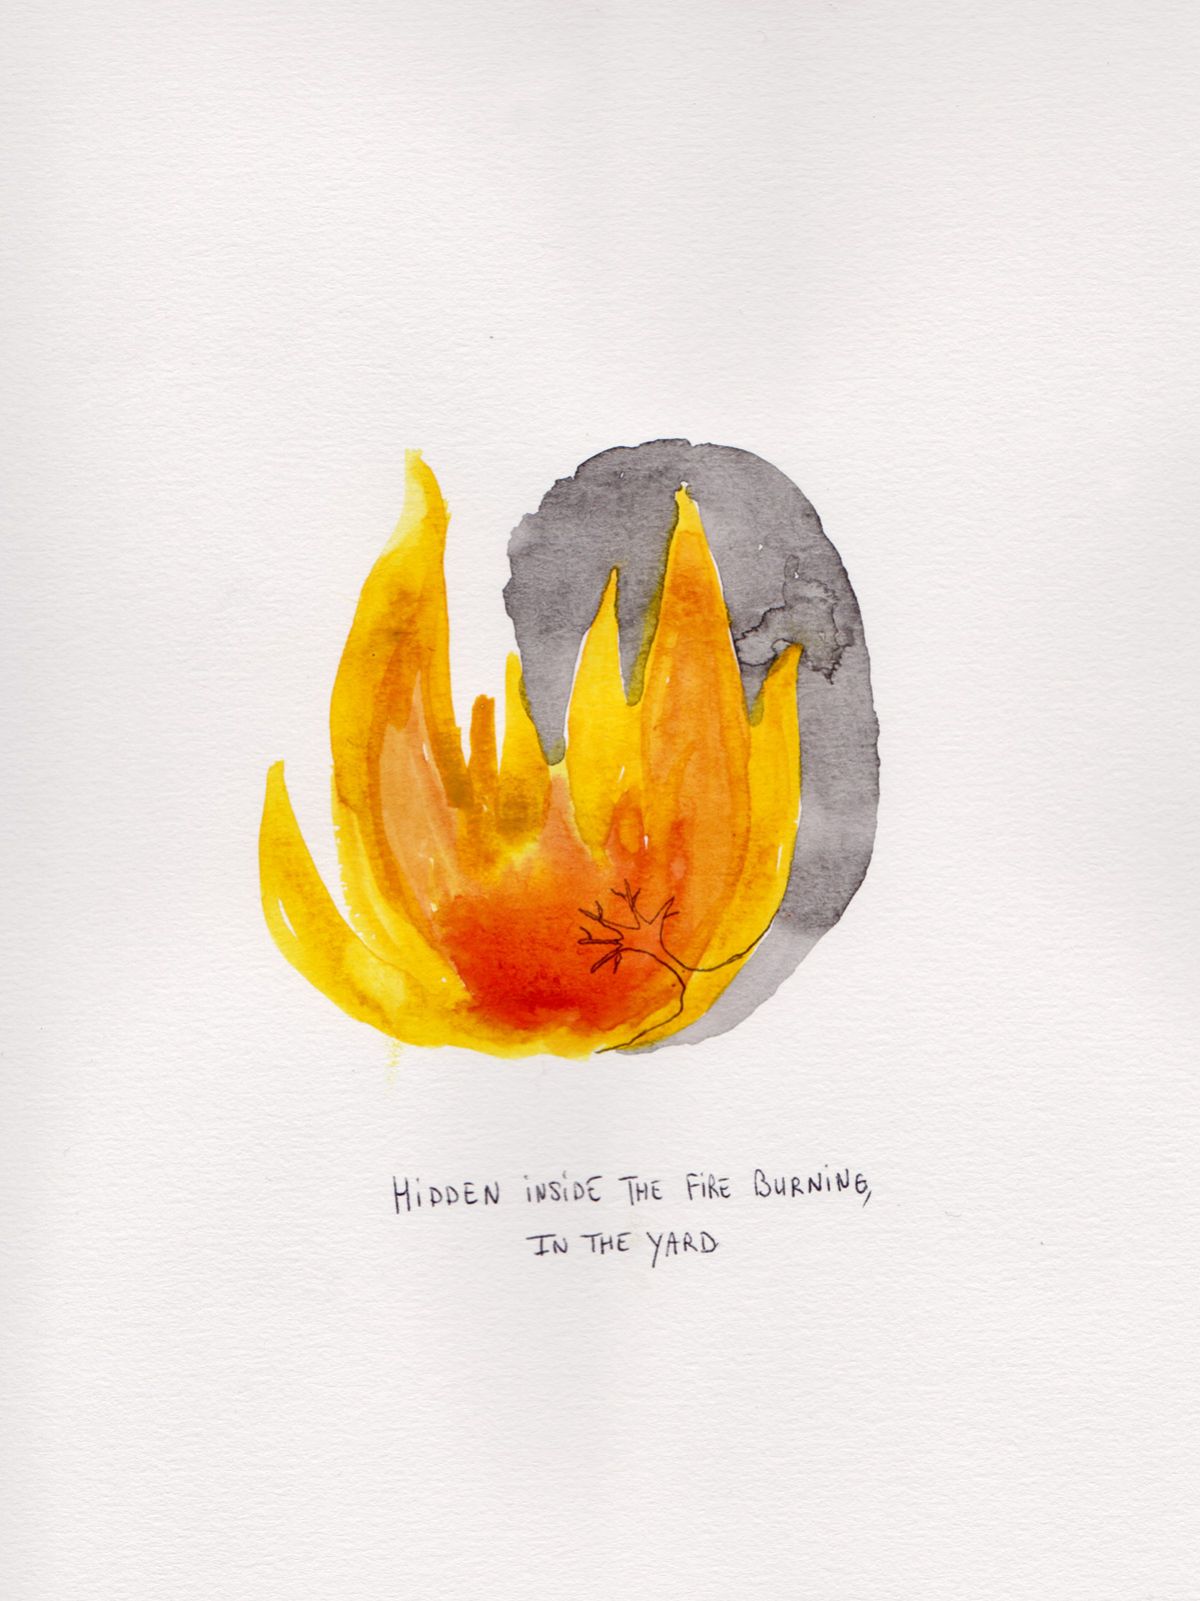 HiDDEN iNSiDE THE FiRE BURNiNG,
IN THE YARD